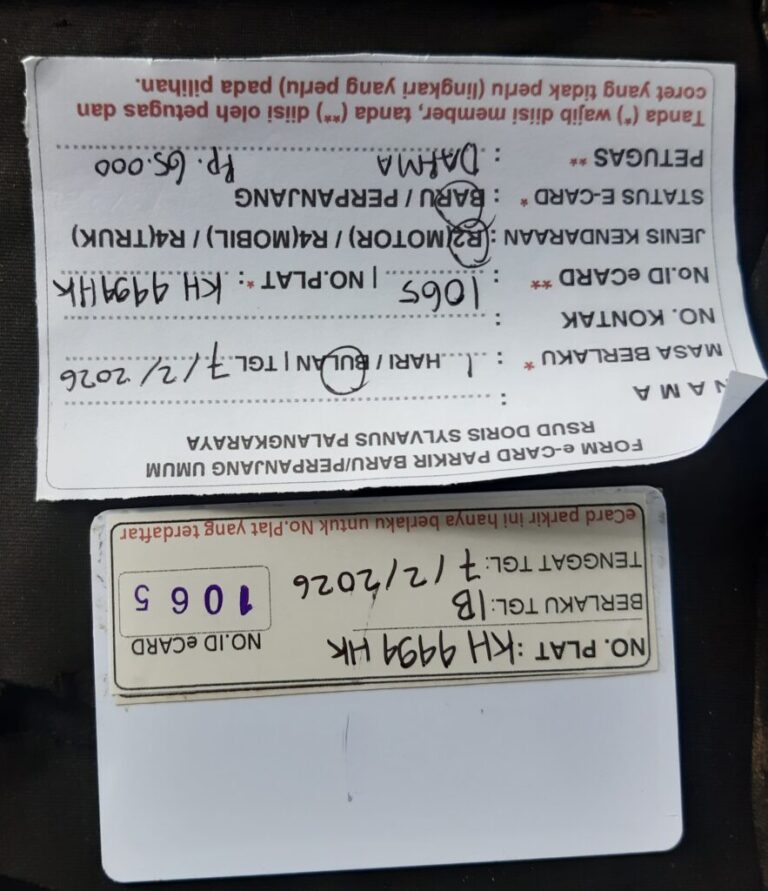 NO. PLAT : KH 4494 HK
BERLAKU TGL: 1B
TENGGAT TGL: 7/2/2026
NO.ID eCARD
1065
eCard parkir ini hanya berlaku untuk No.Plat yang terdaftar
FORM e-CARD PARKIR BARU/PERPANJANG UMUM
RSUD DORIS SYLVANUS PALANGKARAYA
N A M A :
MASA BERLAKU * : 1 HARI / BULAN | TGL 7/2/2026
NO. KONTAK :
No.ID eCARD ** : 1065 | NO.PLAT *: KH 4494 HK
JENIS KENDARAAN : R2(MOTOR) / R4(MOBIL) / R4(TRUK)
STATUS E-CARD * : BARU / PERPANJANG
PETUGAS ** : Rp. 65.000
Tanda (*) wajib diisi member, tanda (**) diisi oleh petugas dan
coret yang tidak perlu (lingkari yang perlu) pada pilihan.